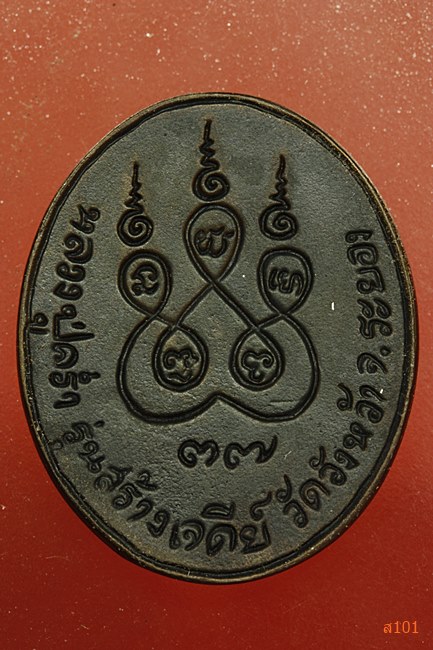 หลวงปู่คร่ำ รุ่นสร้างเจดีย์ วัดวังหว้า จ.ระยอง
๓๗
ส101